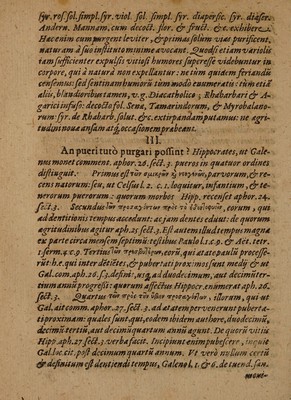 syr. ros. sol. simpl. syr. viol. sol. simpl. syr. diaperse. syr. diaser.
Andern. Mannam, cum decoct. flor. & fruct. &c. exhibere.
Hac enim cum purgent leviter, & primas solùm vias purificent,
naturam à suo instituto minimè avocant. Quodsi etiam variolis
iam sufficienter expulsis vitiosi humores superesse videbuntur in
corpore, qui à naturâ non expellantur: ne tùm quidem feriandū
censemus: sed sentinam humoris tùm modò enumeratis: tùm etiā
aliis, blandioribus tamen, v. g. Diacatholico: Rhabarbaro & A-
garici infuso: decocto fol. Sena, Tamarindorum, & Myrobalano-
rum: syr. de Rhabarb. solut. &c. extirpandam putamus: ne ægri-
tudini novæ ansam atq; occasionem præbeant.
III.
An pueri tutò purgari possint? Hippocrates, ut Gale-
nus monet comment. aphor. 26. sect. 3. pueros in quatuor ordines
distinguit. Primus est parvorum, & re-
cens natorum: seu, ut Celsus l. 2. c. 1. loquitur, infantium, & te-
nerorum puerorum: quorum morbos Hipp. recenset aphor. 24.
sect. 3. Secundus eorum, qui
ad dentitionis tempus accedunt: ac jam dentes edunt: de quorum
ægritudinibus agitur aph. 25 sect. 3. Est autem illud tempus magna
ex parte circa mensem septimum: testibus Paulo l. 1. c. 9. & Aët. tetr.
1. serm. 4. c. 9. Tertius eorū, qui ætate paulò processe-
rūt: h. e. qui inter dētētes, & puber[t]ati proximos sunt mediɉ: & ut
Gal. com. aph. 26. s. 3. defīnit, usq; ad duodecimum, aut decimūter-
tium annū progressi: quorum affectus Hippocr. enumerat aph. 26.
sect. 3. Quartus illorum, qui ut
Gal. ait comm. aphor. 27. sect. 3. ad ætatem pervenerunt puberta-
ti proximam: quales sunt qui, eodem ibidem authore, duodecimū,
decimū tertiū, aut decimū quartum annū agunt. De quorū vitiis
Hipp. aph. 27 sect. 3. verba facit. Incipiunt enim pubescere, inquit
Gal. loc. cit. post decimum quartū annum. Ut verò nullum certū
& definitum est dentiendi tempus, Galeno l. 1. & 6. de tuend. san.